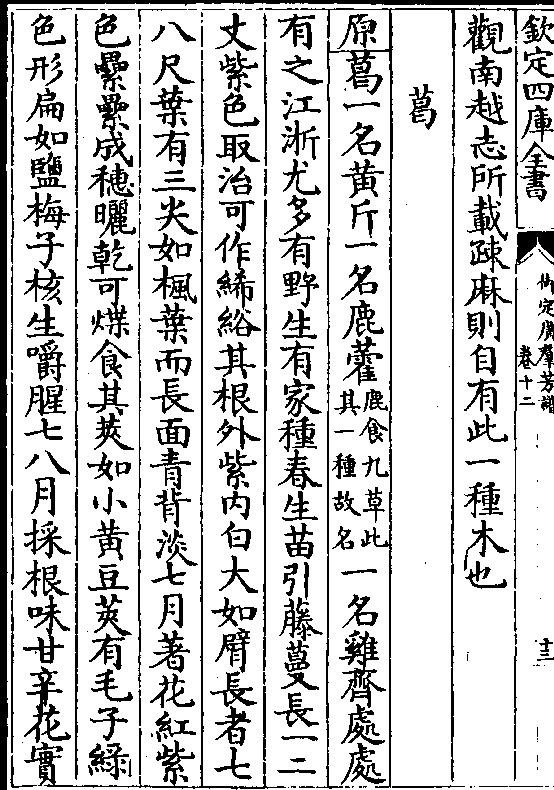 欽定四庫全書
御定廣羣芳譜
卷十二
十三
觀南越志所載疎麻則自有此一種木也
葛
原葛一名黄斤一名鹿藿鹿食九草此其一種故名一名雞齊處處
有之江浙尤多有野生有家種春生苗引藤蔓長一二
丈紫色取治可作絺綌其根外紫内白大如臂長者七
八尺葉有三尖如楓葉而長面青背淡七月著花紅紫
色纍纍成穗曬乾可煠食其莢如小黄豆莢有毛子緑
色形扁如鹽梅子核生嚼腥七八月採根味甘辛花實